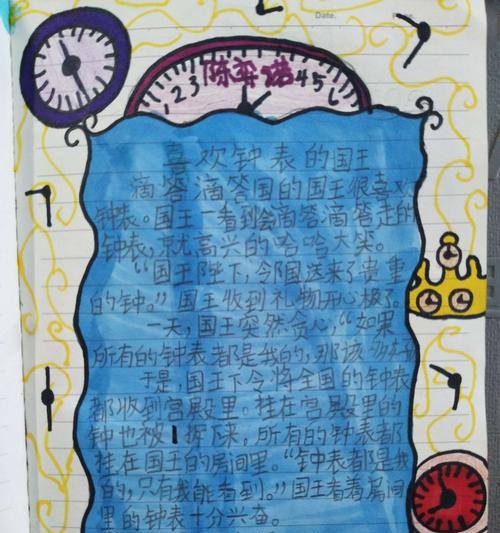 Date.
陈弈诺
1 2 3 4 5 6
喜欢钟表的国王
滴答滴答国的国王很喜欢
钟表。国王一看到会滴答滴答走的
钟表,就高兴的哈哈大笑。
“国王陛下,邻国送来了贵重
的钟。”国王收到礼物开心极了。
一天,国王突然贪心,“如果
所有的钟表都是我的,那该多好
于是,国王下令将全国的钟表
都收到宫殿里。挂在宫殿里的
钟也被拆下来,所有的钟表都
挂在国王的房间里。“钟表都是我
的,只有我能看到。”国王看着房间
里的钟表十分兴奋。